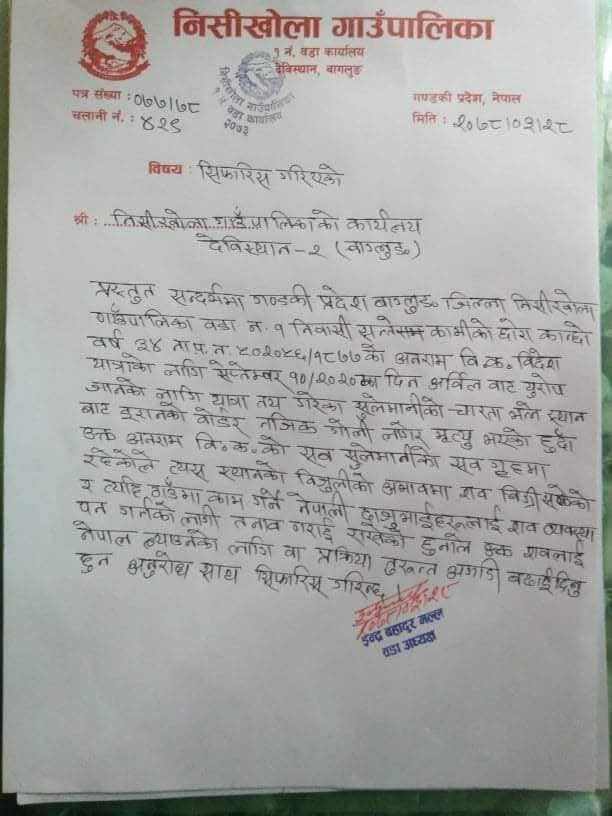 निसीखोला गाउँपालिका
१ नं. वडा कार्यालय
देविस्थान, बागलुङ
निसीखोला गाउँपालिका
१ नं. वडा कार्यालय
२०७३
पत्र संख्या : ०७७/७८
चलानी नं. : ४२९
गण्डकी प्रदेश, नेपाल
मिति : २०७८/०३/२८
विषय : सिफारिस गरिएको
श्री : निसीखोला गाउँपालिकाको कार्यलय
देविस्थान - २ (बाग्लुङ)
प्रस्तुत सन्दर्भमा गण्डकी प्रदेश बाग्लुङ जिल्ला निसीखोला
गाउँपालिका वडा न. १ निवासी कामीको छोरा कान्छो
वर्ष ३४ ना.प्र.न. को अनराम वि.क. विदेश
यात्राको लागि सेप्तेम्बर १०/२०२० का दिन अर्विल बाट युरोप
जानको लागि यात्रा तय गरेका सुलेमानीको चारता भन्ने स्थान
बाट इरानको वोर्डर नजिक गोली लागेर मृत्यु भएको हुँदा
उक्त अनराम वि.क. को सव सुलेमानीको सव गृहमा
रहेकोले त्यस स्थानको विजुलीको अभावमा शव विग्रीसकेको
र त्यहि ठाउँमा काम गर्ने नेपाली दाजुभाईहरुलाई शव व्यवस्था
पन गर्नको लागी तनाव गराई राखेको हुनाले उक्त शवलाई
नेपाल ल्याउनको लागि वा प्रक्रिया तुरुन्त अगाडी बढाईदिनु
हुन अनुरोध साथ सिफारिस गरिन्छ।
इन्द्र बहादुर मल्ल
वडा अध्यक्ष